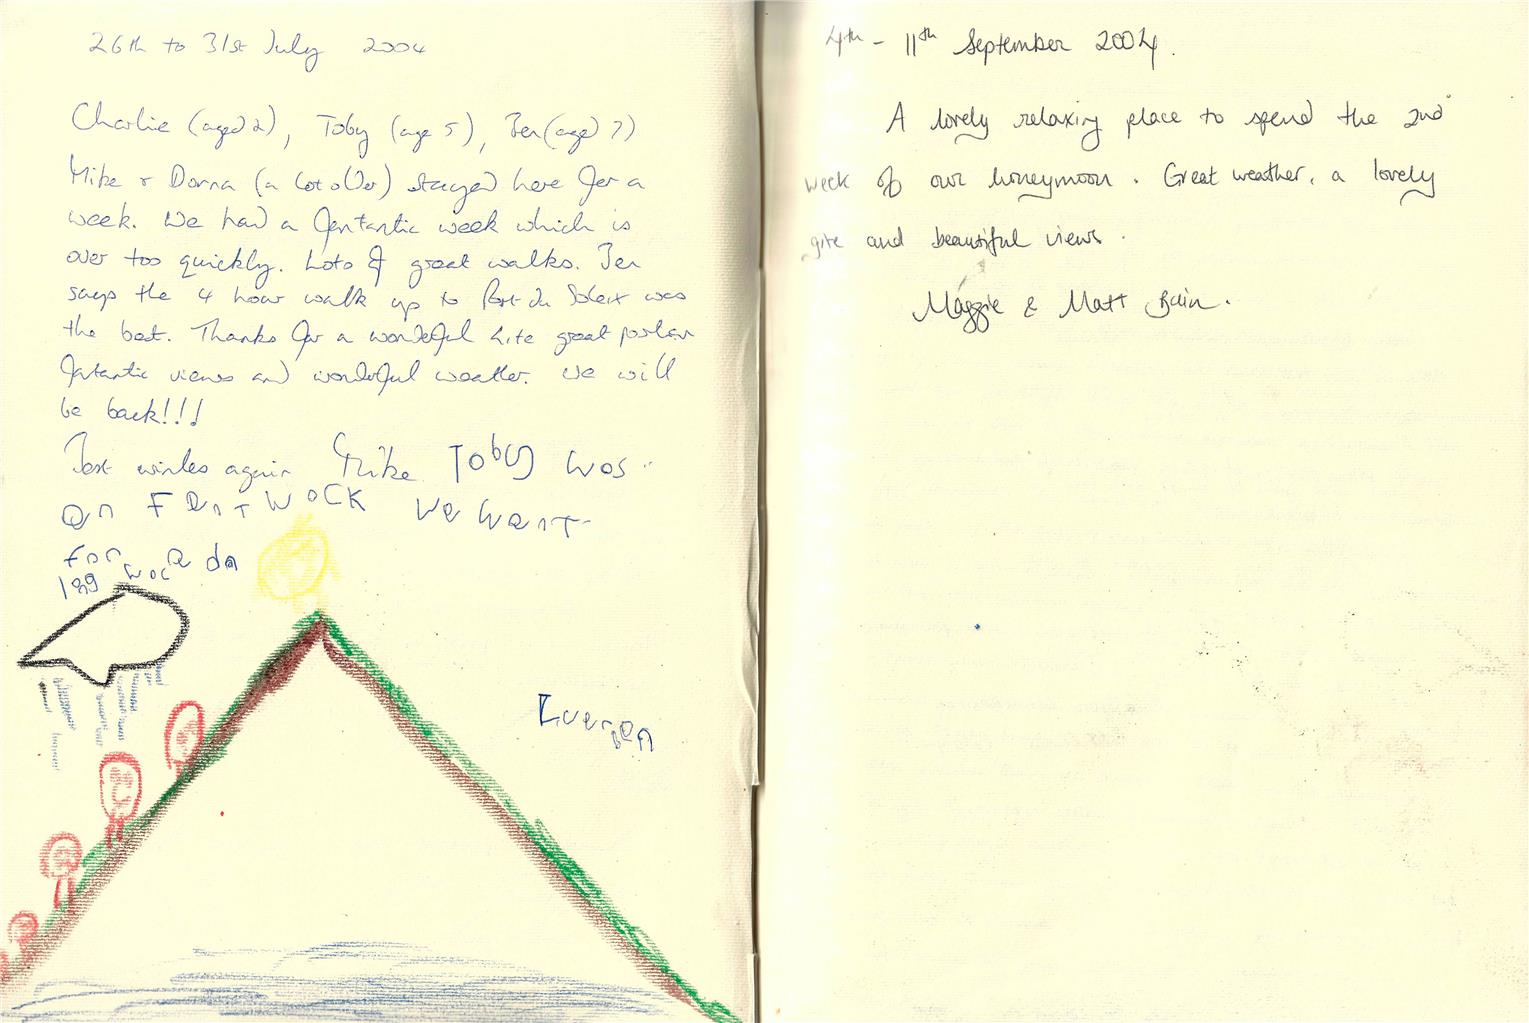 26th to 31st July 2004
Charlie (aged 2), Toby (age 5), Ben (aged 7)
Mike + Donna (a lot older) stayed here for a
week. We had a fantastic week which is
over too quickly. Lots of great walks. Ben
says the 4 hour walk up to was
the best. Thanks for a wonderful Gite great
fantastic views and wonderful weather. We will
be back!!!
Best wishes again Mike Toby was
we went
4th - 11th September 2004.
A lovely relaxing place to spend the 2nd
week of our honeymoon. Great weather, a lovely
gite and beautiful views.
Maggie & Matt Bain.